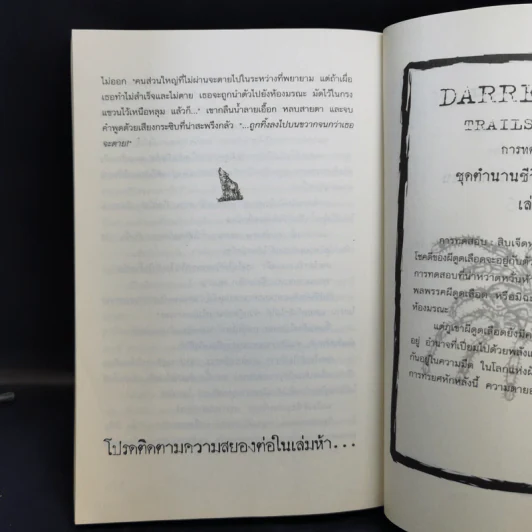 ไม่ออก "คนส่วนใหญ่ที่ไม่ผ่านจะตายไปในระหว่างที่พยายาม แต่ถ้าเผื่อ
เธอทำไม่สำเร็จและไม่ตาย เธอจะถูกนำตัวไปยังห้องมรณะ มัดไว้ในกรง
แขวนไว้เหนือหลุม แล้วก็..." เขากลืนน้ำลายเอื้อก หลบสายตา และจบ
คำพูดด้วยเสียงกระซิบที่น่าสะพรึงกลัว "...ถูกทิ้งลงไปบนขวากจนกว่าเธอ
จะตาย!"
โปรดติดตามความสยองต่อในเล่มห้า...
DARRE
TRAILS
การทด
ชุดตำนานชีวิ
เล่
การทดสอบ : สิบเจ็ด
โชคดีของผีดูดเลือดจะอยู่กับตั
การทดสอบที่น่าหวาดหวั่นห้
พลพรรคผีดูดเลือด หรือมิฉะ
ห้องมรณะ
แต่ภูเขาผีดูดเลือดยังมี
อยู่ อำนาจที่เปี่ยมไปด้วยพลัง
กันอยู่ในความมืด ในโลกแห่ง
การทรยศหักหลังนี้ ความตาย